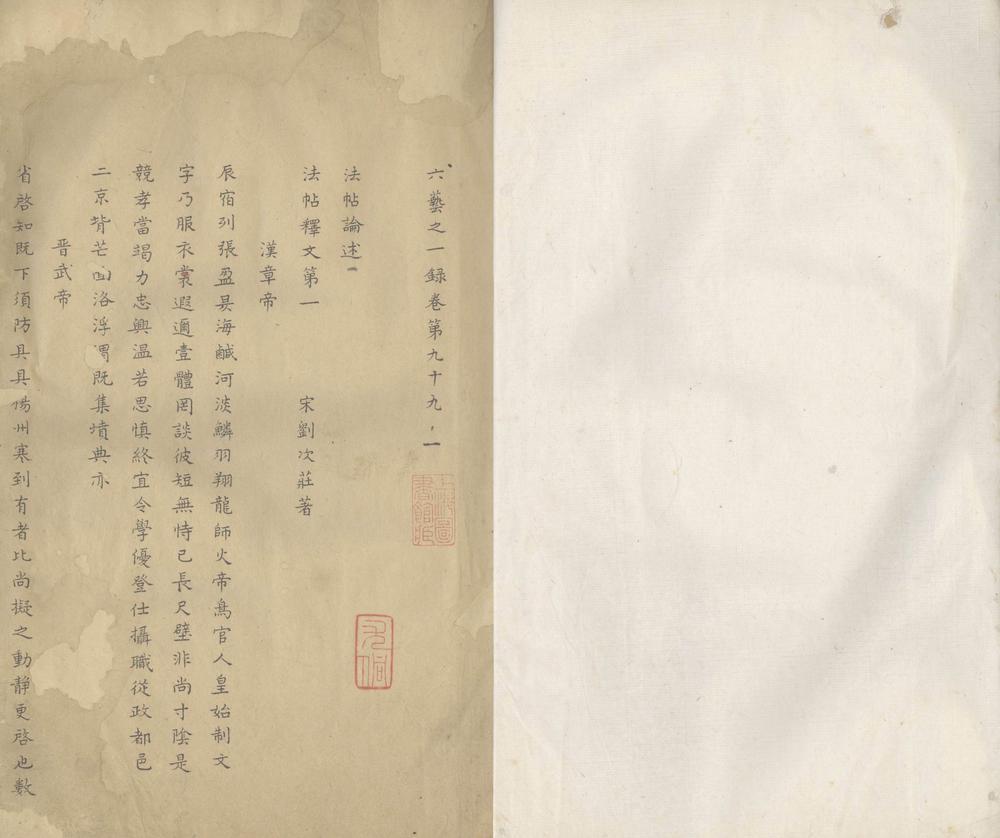 六藝之一録卷第九十九·一
法帖論述一
法帖釋文第一 宋劉次莊著
漢章帝
辰宿列張盈昃海鹹河淡鱗羽翔龍師火帝鳥官人皇始制文
字乃服衣裳遐邇壹體罔談彼短無恃已長尺璧非尚寸陰是
競孝當竭力忠興溫若思慎終宜令學優登仕攝職從政都邑
二京背芒面洛浮渭既集墳典亦
晋武帝
省啓知既下須防具具揚州寒到有者比尚擬之動靜更啓也數